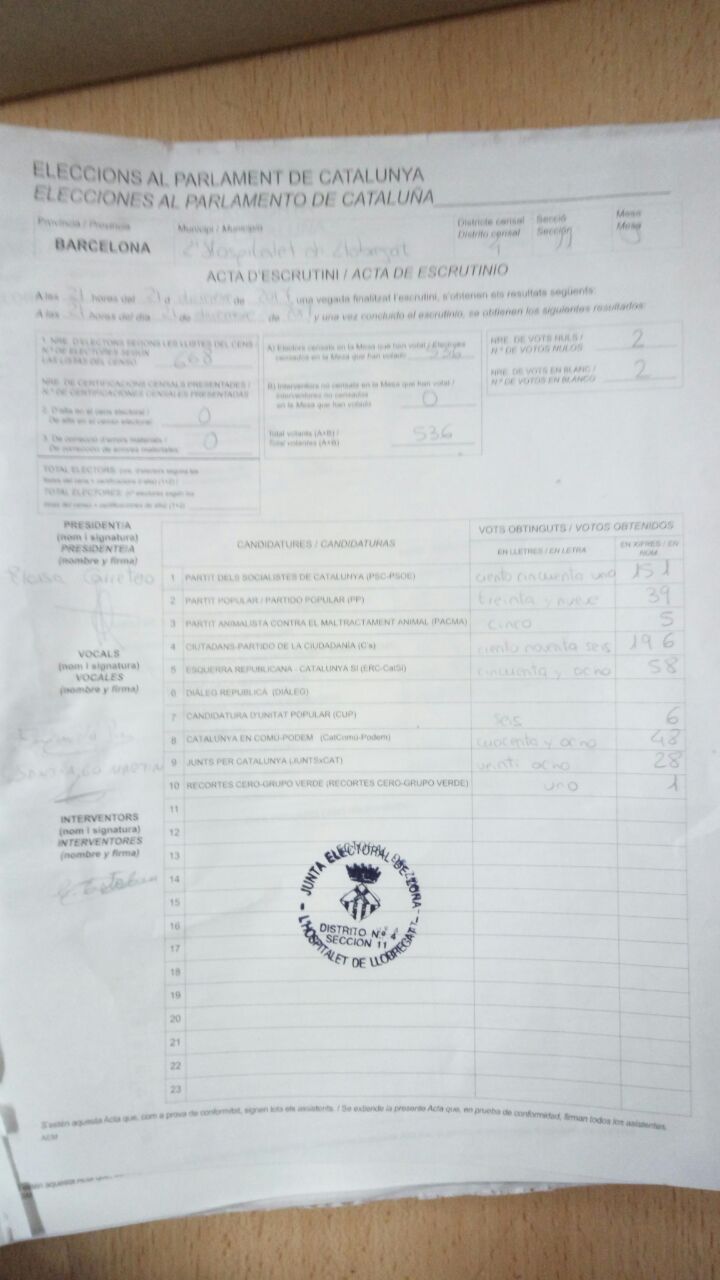 ELECCIONS AL PARLAMENT DE CATALUNYA
ELECCIONES AL PARLAMENTO DE CATALUÑA
Província / Provincia
BARCELONA
Municipi / Municipio
L'Hospitalet de Llobregat
Districte censal
Distrito censal
4
Secció
Sección
11
Mesa
Mesa
ACTA D'ESCRUTINI / ACTA DE ESCRUTINIO
A les 21 hores del 21 de de 2017, una vegada finalitzat l'escrutini, s'obtenen els resultats següents:
A las 21 horas del día 21 de de y una vez concluido el escrutinio, se obtienen los siguientes resultados:
1. NRE. D'ELECTORS SEGONS LES LLISTES DEL CENS /
N.º DE ELECTORES SEGÚN
LAS LISTAS DEL CENSO
668
NRE. DE CERTIFICACIONS CENSALS PRESENTADES /
N.º DE CERTIFICACIONES CENSALES PRESENTADAS
2. D'alta en el cens electoral /
De alta en el censo electoral
0
3. De correcció d'errors materials /
De corrección de errores materiales
0
A) Electors censats en la Mesa que han votat / Electores
censados en la Mesa que han votado
536
B) Interventors no censats en la Mesa que han votat /
Interventores no censados
en la Mesa que han votado
0
Total votants (A+B) /
Total votantes (A+B)
536
NRE. DE VOTS NULS /
N.º DE VOTOS NULOS
2
NRE. DE VOTS EN BLANC /
N.º DE VOTOS EN BLANCO
2
TOTAL ELECTORS
TOTAL ELECTORES
PRESIDENT/A
(nom i signatura)
PRESIDENTE/A
(nombre y firma)
Carretero
VOCALS
(nom i signatura)
VOCALES
(nombre y firma)
SANTIAGO MARTIN
INTERVENTORS
(nom i signatura)
INTERVENTORES
(nombre y firma)
CANDIDATURES / CANDIDATURAS
VOTS OBTINGUTS / VOTOS OBTENIDOS
EN LLETRES / EN LETRA
EN XIFRES / EN NÚM.
1 PARTIT DELS SOCIALISTES DE CATALUNYA (PSC-PSOE) ciento cincuenta uno 151
2 PARTIT POPULAR / PARTIDO POPULAR (PP) treinta y nueve 39
3 PARTIT ANIMALISTA CONTRA EL MALTRACTAMENT ANIMAL (PACMA) cinco 5
4 CIUTADANS-PARTIDO DE LA CIUDADANÍA (C's) ciento noventa seis 196
5 ESQUERRA REPUBLICANA - CATALUNYA SÍ (ERC-CatSí) cincuenta y ocho 58
6 DIÀLEG REPUBLICÀ (DIÀLEG)
7 CANDIDATURA D'UNITAT POPULAR (CUP) seis 6
8 CATALUNYA EN COMÚ-PODEM (CatComú-Podem) cuarenta y ocho 48
9 JUNTS PER CATALUNYA (JUNTSxCAT) veinti ocho 28
10 RECORTES CERO-GRUPO VERDE (RECORTES CERO-GRUPO VERDE) uno 1
11
12
13
14
15
16
17
18
19
20
21
22
23
JUNTA ELECTORAL DE ZONA
DISTRITO N.º 4
SECCION 11
L'HOSPITALET DE LLOBREGAT
S'estén aquesta Acta que, com a prova de conformitat, signen tots els assistents. / Se extiende la presente Acta que, en prueba de conformidad, firman todos los asistentes.